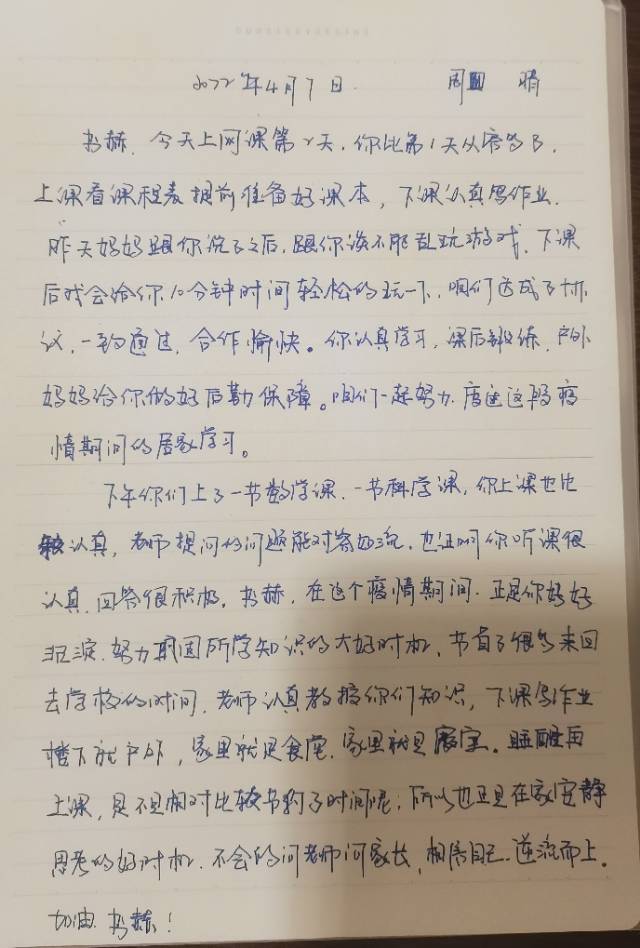 2022年4月7日 周四 晴
书赫,今天上网课第2天,你比第1天从容多了,
上课看课程表提前准备好课本,下课认真写作业。
昨天妈妈跟你说了之后,跟你谈不能乱玩游戏,下课
后我会给你10分钟时间轻松的玩一下,咱们达成了协
议,一致通过,合作愉快。你认真学习,课后锻炼,户外
妈妈给你做好后勤保障。咱们一起努力,度过这段疫
情期间的居家学习。
下午你们上了一节数学课,一节科学课,你上课也比
较认真,老师提问的问题能对答如流,也证明你听课很
认真,回答很积极。书赫,在这个疫情期间,正是你好好
沉淀,努力巩固所学知识的大好时机,节省了很多来回
去学校的时间,老师认真教授你们知识,下课写作业
楼下就户外,家里就是食堂,家里就是寝室。睡醒再
上课,是不是相对比较节约了时间呢,所以也正是在家安静
思考的好时机,不会的问老师问家长,相信自己,逆流而上。
加油,书赫!